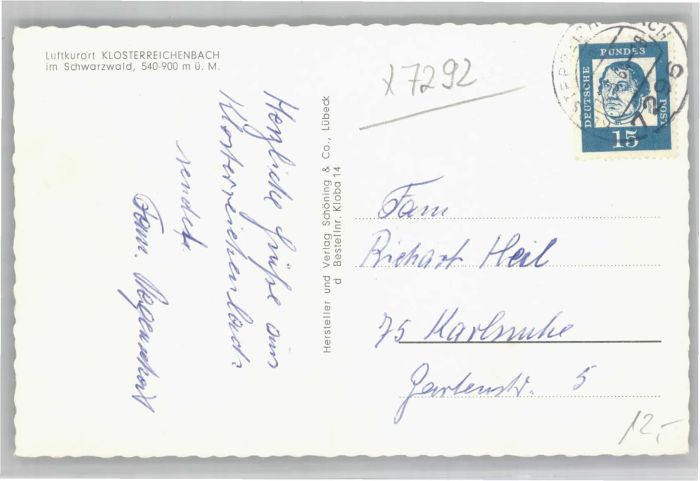 Luftkurort KLOSTERREICHENBACH
im Schwarzwald, 540-900 m ü. M.
Herzliche Grüße aus
Klosterreichenbach
sendet
Fam.
Hersteller und Verlag Schöning & Co., Lübeck
d Bestellnr. Kloba 14
x 7292
DEUTSCHE BUNDESPOST
15
7295
Fam
Richart Heil
75 Karlsruhe
Gartenstr. 5
12,-